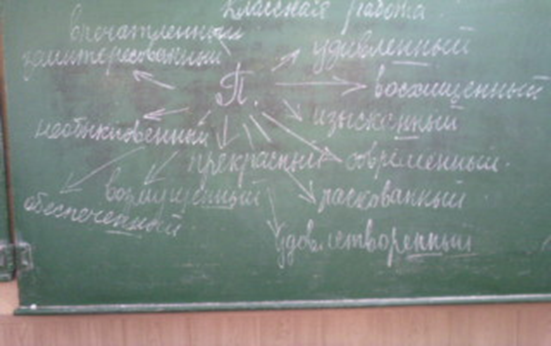 классная работа
впечатленный
заинтересованный
удивленный
П.
восхищенный
изысканный
необыкновенный
прекрасный
современный.
возмущенный
раскованный
обеспеченный
удовлетворенный